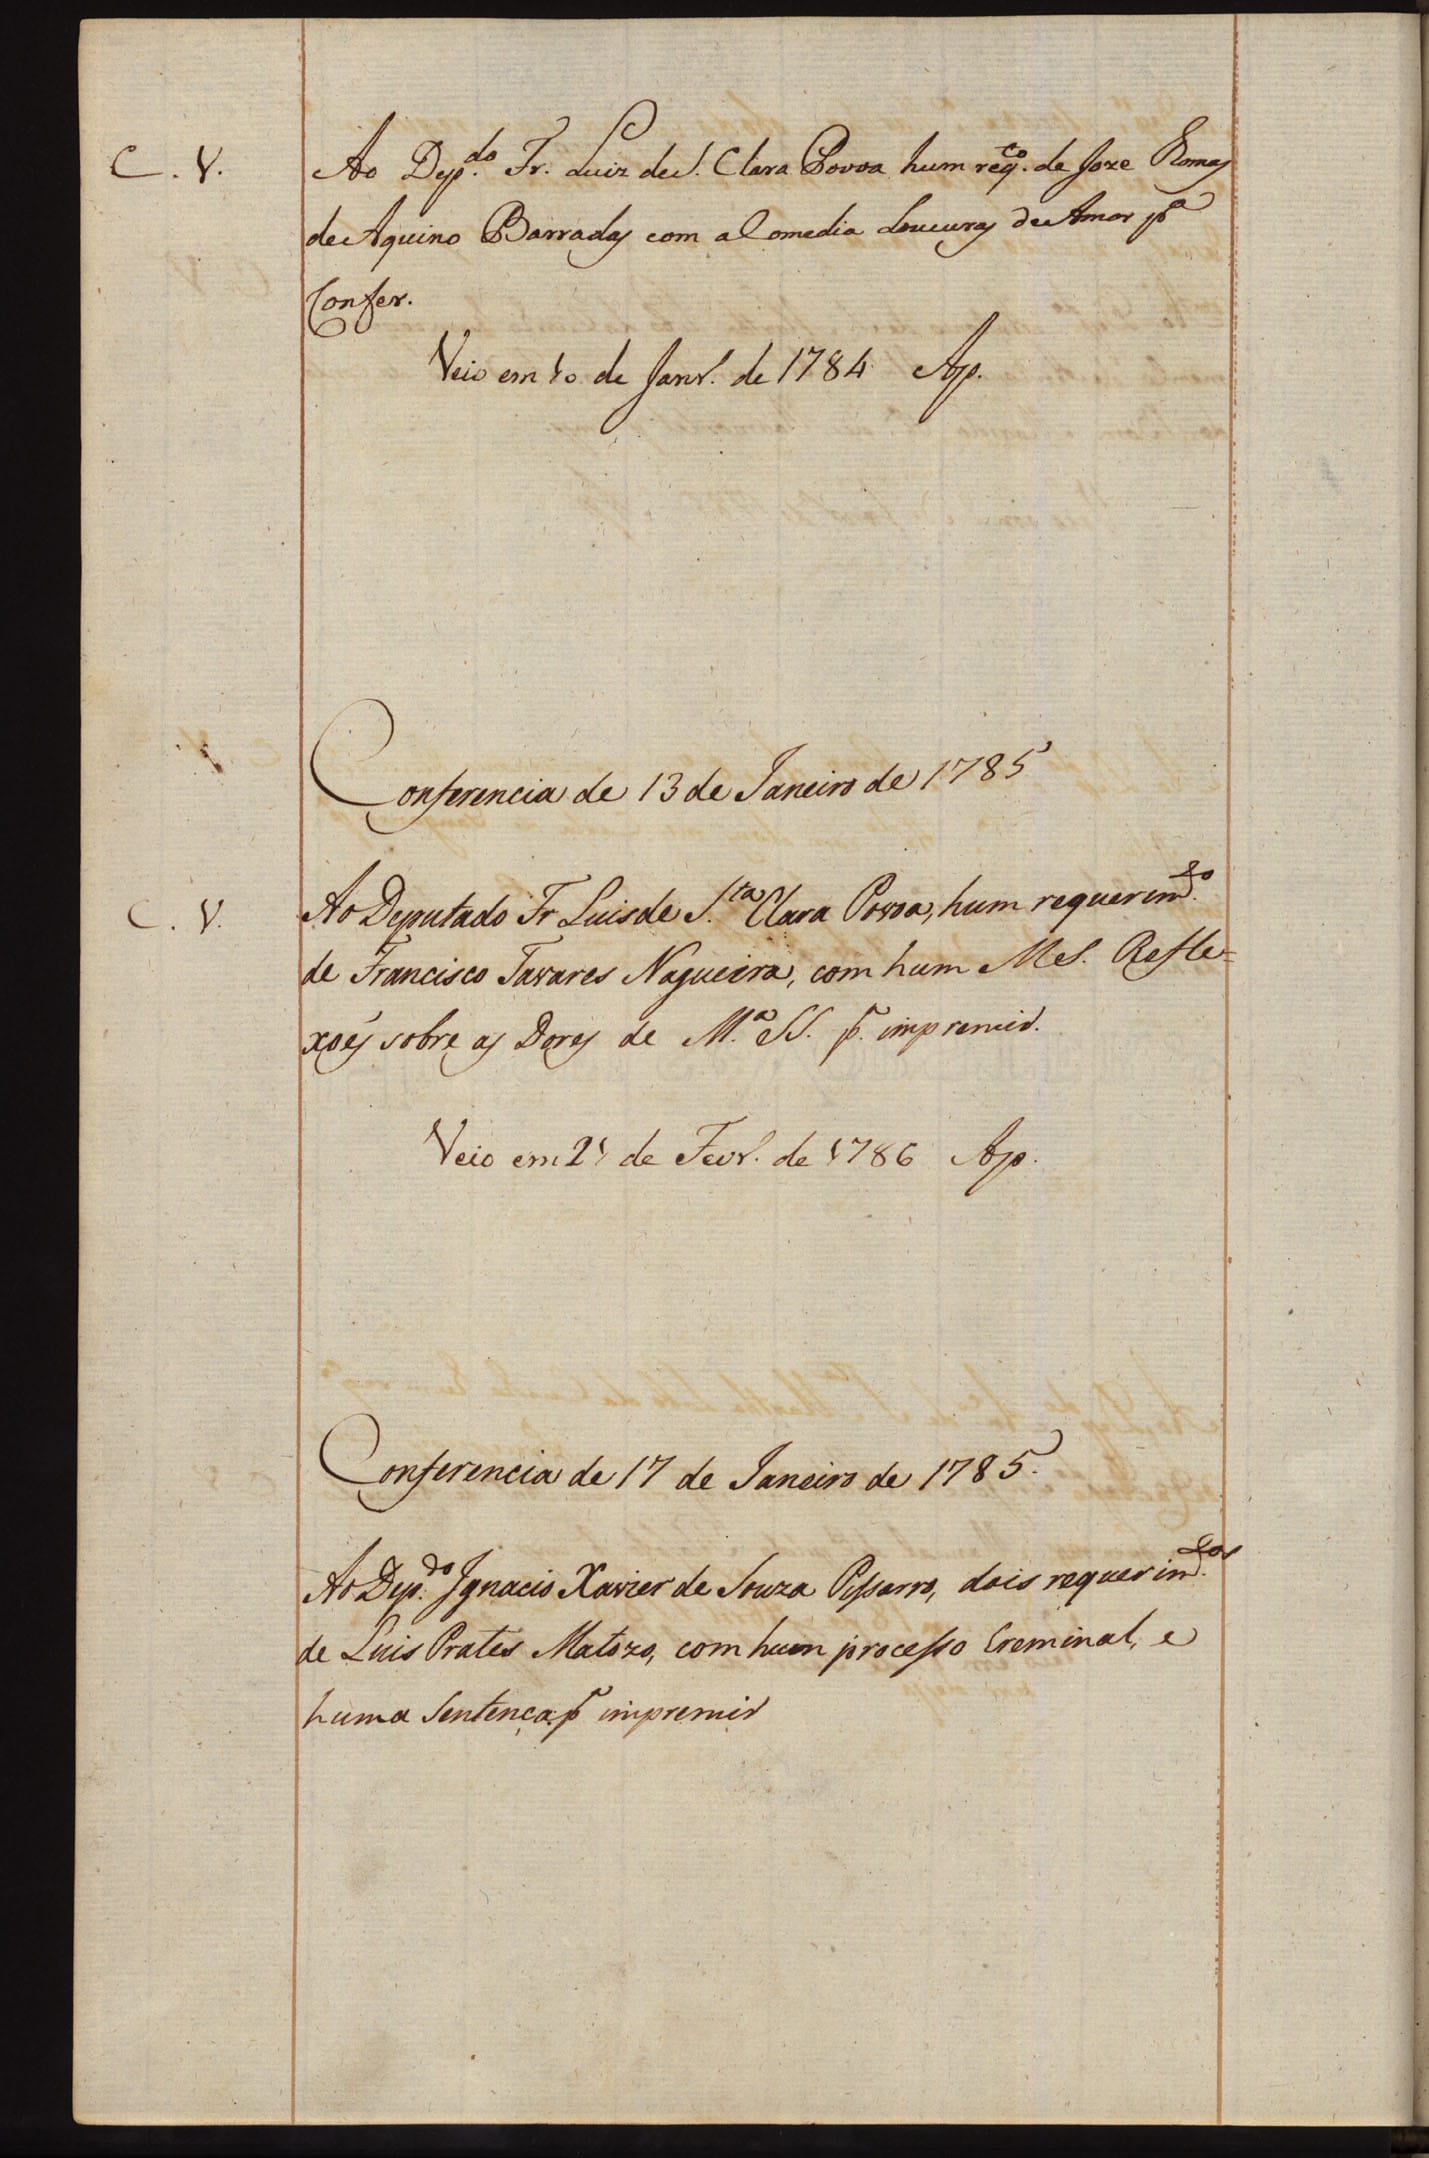 C. V.
Ao Dep.do Fr. Luiz de S. Clara Povoa hum req.to de Joze Tomas
de Aquino Barradas com a Comedia Loucuras de Amor p.a
Confer.
Veio em 10 de Janr. de 1784 Ap.
Conferencia de 13 de Janeiro de 1785
C. V.
Ao Deputado Fr Luis de S.ta Clara Povoa, hum requerim.to
de Francisco Tavares Nogueira, com hum MeS. Refle=
xoẽs sobre as Dores de M.a SS. p.a impremir.
Veio em 21 de Fevr. de 1786 Ap.
Conferencia de 17 de Janeiro de 1785.
Ao Dep.do Ignacio Xavier de Souza Pissarro, dois requerim.tos
de Luis Prates Matozo, com hum processo Creminal, e
huma Sentença p.a impremir